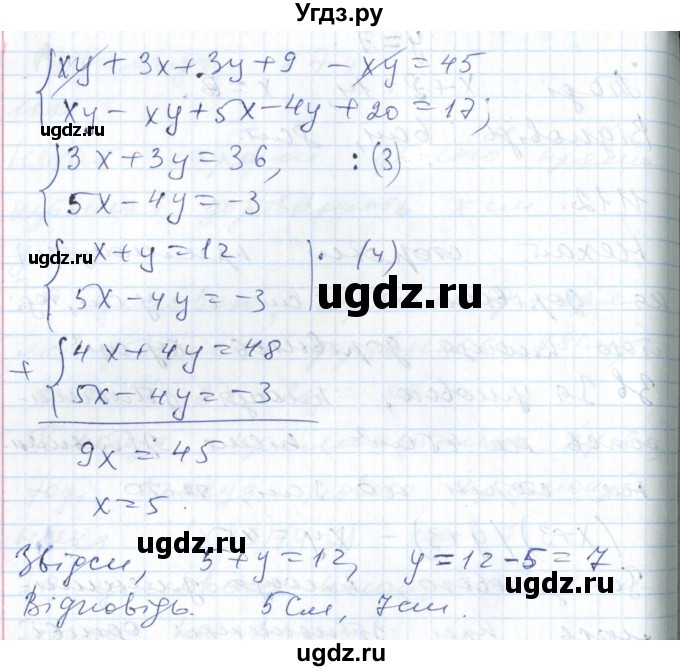 Угдз.ру
xy + 3x + 3y + 9 - xy = 45
xy - xy + 5x - 4y + 20 = 17;
ugdz.ru
3x + 3y = 36, : (3)
5x - 4y = -3
ugdz.ru
x + y = 12 | · (4)
5x - 4y = -3
ugdz.ru
+ 4x + 4y = 48
5x - 4y = -3
ugdz.ru
9x = 45
x = 5.
ugdz.ru
Звідси, 5 + y = 12, y = 12 - 5 = 7.
ugdz.ru
Відповідь. 5 см, 7 см.
ugdz.ru ugdz.ru